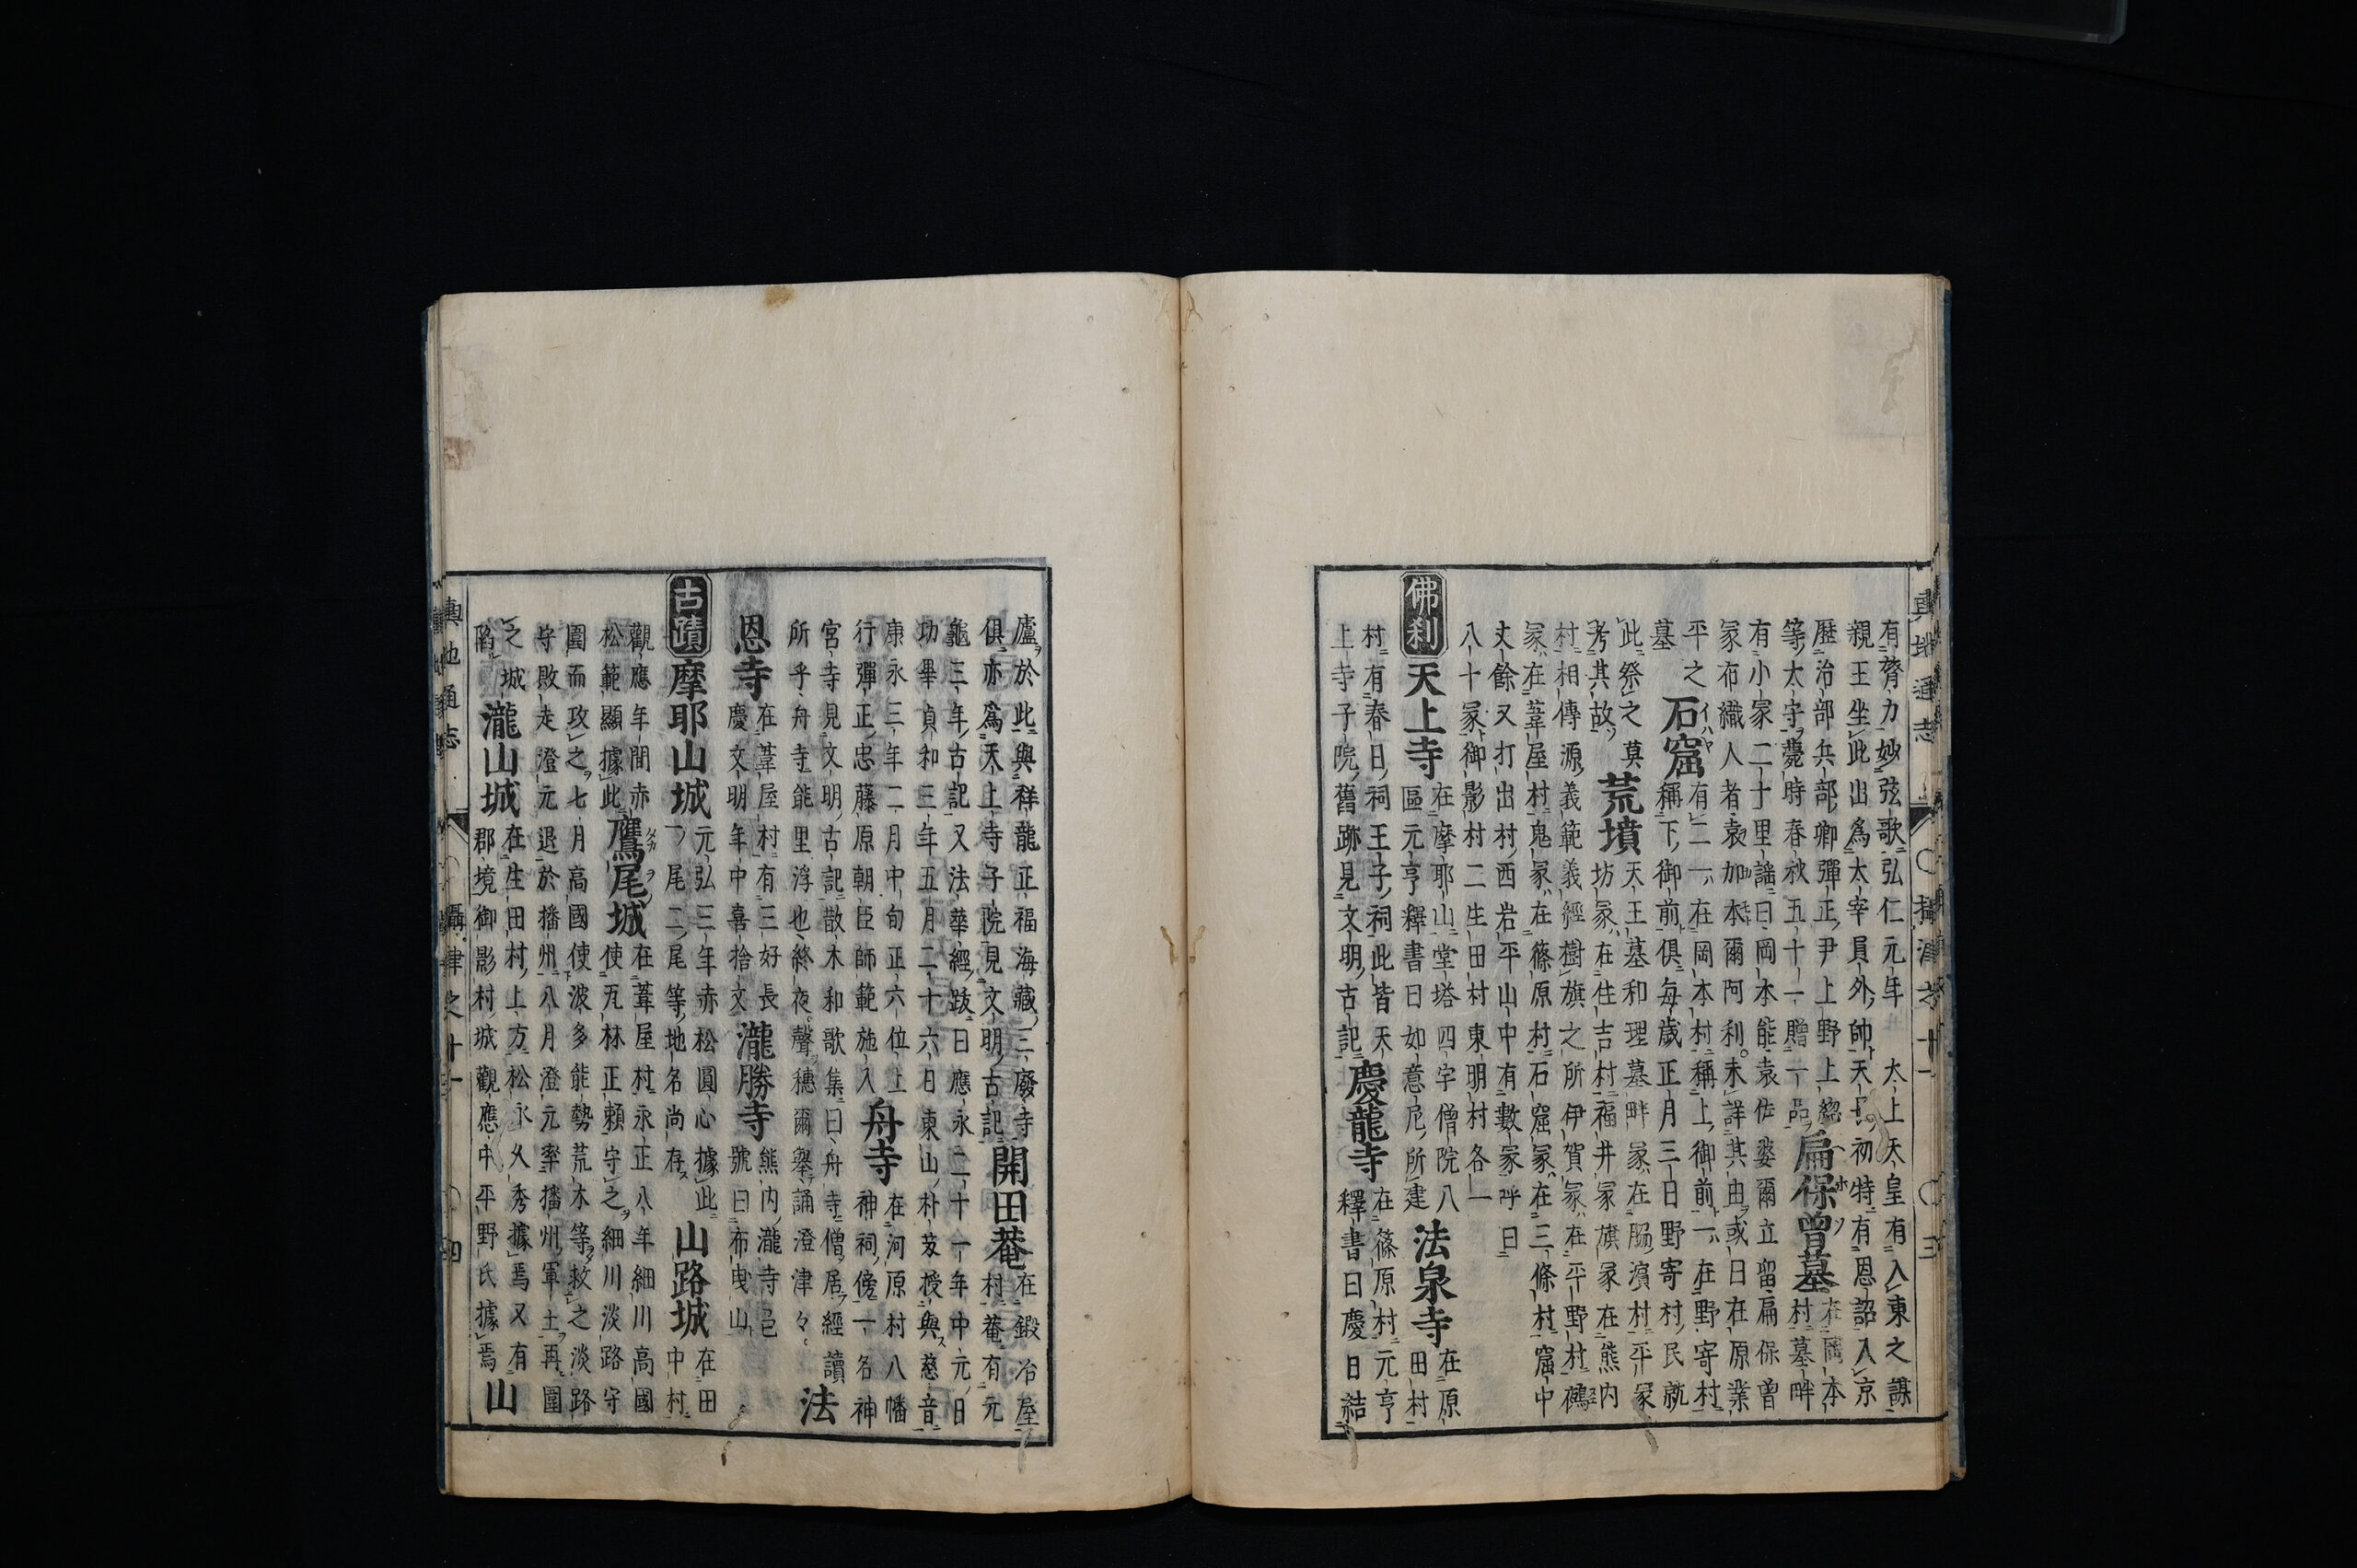 有膂力妙弦歌弘仁元年 太上天皇有入東之謀
親王坐此出爲太宰員外帥天長初特有恩詔入京
歷治部兵部卿彈正尹上野上總
等太守薨時春秋五十一贈一品扁保曾墓在岡本村墓畔
有小冡二十里謠曰岡本能袁佐婆爾立留扁保曾
冡布織人者袁加本爾阿利未詳其由或曰在原業
平之
墓 石窟有二一在岡本村稱上御前一在野寄村
稱下御前俱每歲正月三日野寄村民就
此祭之莫
考其故 荒墳天王墓和理墓畔冡在脇濱村平冡
坊冡在住吉村福井冡旗冡在熊内
村相傳源義範義經樹旗之所伊賀冡在平野村鵺
冡在葦屋村鬼冡在篠原村石窟冡在三條村窟中
丈餘又打出村西岩平山中有數冡呼曰
八十冡御影村二生田村東明村各一
佛刹 天上寺在摩耶山堂塔四宇僧院八
區元亨釋書曰如意尼所建 法泉寺在原
田村
村有春日祠王子祠此皆天
上寺子院舊跡見文明古記 慶龍寺在篠原村元亨
釋書曰慶日結
廬於此與祥龍正福海藏三廢寺
俱亦爲天上寺子院見文明古記 開田菴在鍛冶屋
村菴有元
龜三年古記又法華經跋曰應永二十一年中元日
功畢貞和三年五月二十六日東山朴芨授與慈音
康永三年二月中旬正六位上
行彈正忠藤原朝臣師範施入 舟寺在河原村八幡
神祠傍一名神
宮寺見文明古記散木和歌集曰舟寺僧居經讀
所乎舟寺能里浮也終夜聲穗爾舉誦澄津々 法
恩寺在葦屋村有三好長
慶文明年中喜捨文 瀧勝寺熊内瀧寺邑
號曰布曳山
古蹟 摩耶山城元弘三年赤松圓心據此
一ノ尾二ノ尾等地名尚存 山路城在田
中村
觀應年間赤
松範顯據此 鷹尾城在葦屋村永正八年細川高國
使瓦林正賴守之細川淡路守
圍而攻之七月高國使波多能勢荒木等救之淡路
守敗走澄元退於播州八月澄元率播州軍士再圍
之城
陷 瀧山城在生田村上方松永久秀據焉又有
郡境御影村城觀應中平野氏據焉 山
輿地通志 攝津之十一 三
輿地通志 攝津之十一 四